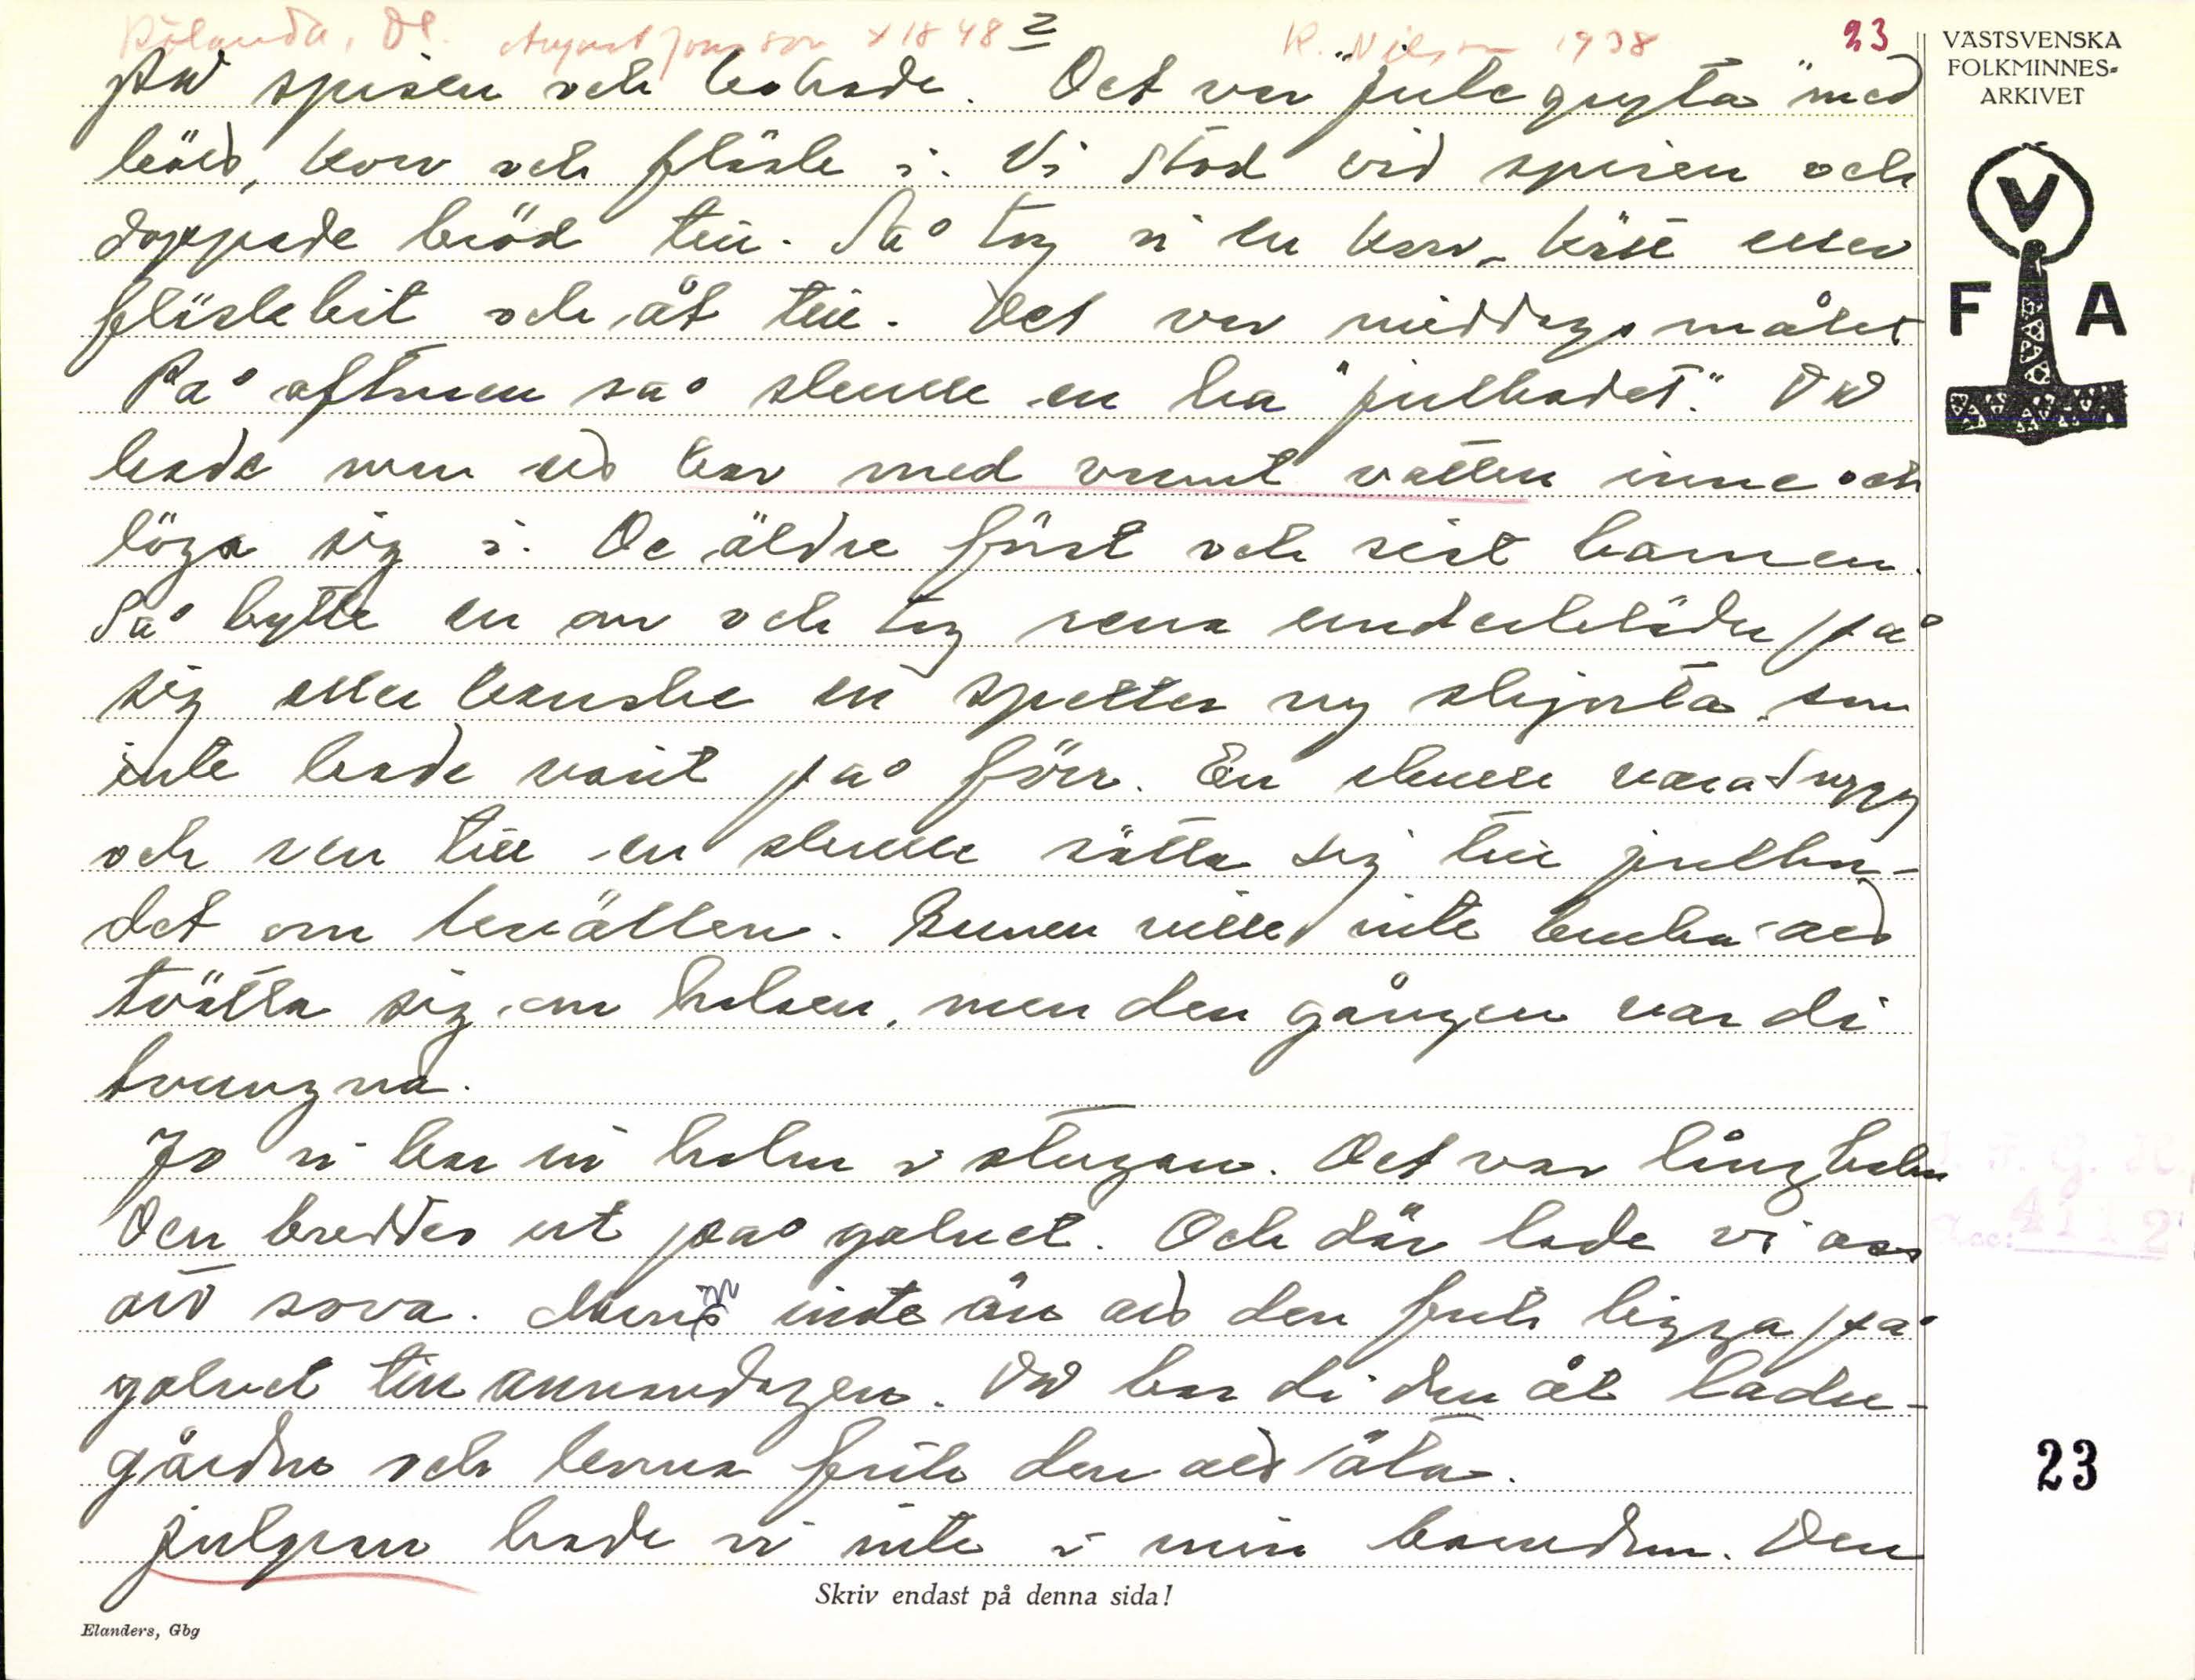 Rölanda, Dl. August Jonsson f 1848 2 K. Nilsson 1938 23
på spisen och kokade. Det var "julegryta" med
kött, korv och fläsk i. Vi stod vid spisen och
doppade bröd till. Så tog vi en korv- kött eller
fläskbit och åt till. Det var middagsmålet
På aftonen så skulle en ha "julbadet". Då
hade man ett kar med varmt vatten inne och
löga sig i. De äldre först och sist barnen.
Så bytte en om och tog rena underkläder på
sig eller kanske en spetter ny skjorta som
inte hade varit på förr. En skulle vara snygg
och ren till en skulle sätta sig till julbor-
det om kvällen. Barnen ville inte bruka att
tvätta sig om halsen, men den gången var di
tvungna.
Jo vi bar in halm i stugan. Det var långhalm
Den breddes ut på golvet. Och där lade vi oss
att sova. Men inte än att den fick ligga på
golvet till annandagen. Då bar di den åt ladu-
gården och korna fick den att äta.
Julgran hade vi inte i min barndom. Den
Skriv endast på denna sida!
Elanders, Gbg
VÄSTSVENSKA
FOLKMINNES-
ARKIVET
V
F A
23